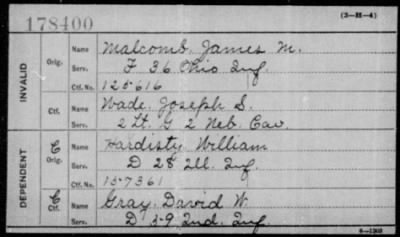 178400
(3-H-4)
INVALID
Orig.
Name Malcomb, James M.
Serv. F 36 Ohio Inf.
Ctf. No. 125616
Ctf.
Name Wade, Joseph S.
Serv. 2 Lt. G 2 Neb. Cav.
DEPENDENT
C Orig.
Name Hardisty, William
Serv. D 28 Ill. Inf.
Ctf. No. 157361
C Ctf.
Name Gray, David W.
Serv. D 59 Ind. Inf.